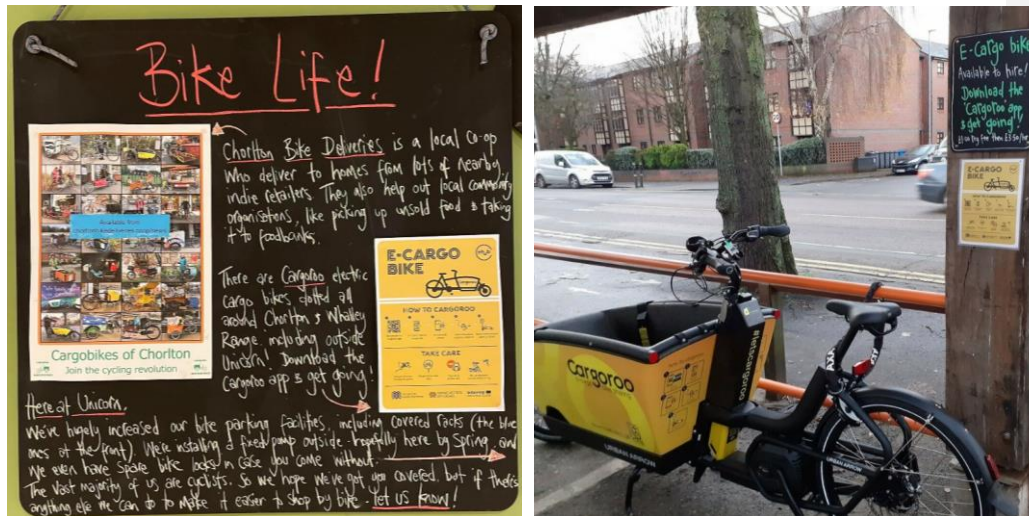 Bike Life!
Chorlton Bike Deliveries is a local co-op
who deliver to homes from lots of nearby
indie retailers. They also help out local community
organisations, like picking up unsold food & taking
it to foodbanks.
Available from
Cargobikes of Chorlton
Join the cycling revolution
There are Cargoroo electric
cargo bikes dotted all
around Chorlton & Whalley
Range, including outside
Unicorn! Download the
Cargoroo app & get going!
E-CARGO
BIKE
HOW TO CARGOROO
TAKE CARE
Here at Unicorn,
We've hugely increased our bike parking facilities, including covered racks (the blue
ones at the front). We're installing a fixed pump outside - hopefully here by Spring, and
we even have spare bike locks in case you come without.
The vast majority of us are cyclists. So we hope we've got you covered, but if there's
anything else we can do to make it easier to shop by bike - let us know!
E-Cargo bike
Available to hire!
Download the
'Cargoroo' app
& get going!
E-CARGO
BIKE
Cargoroo
URBAN ARROW
AXA
URBAN ARROW